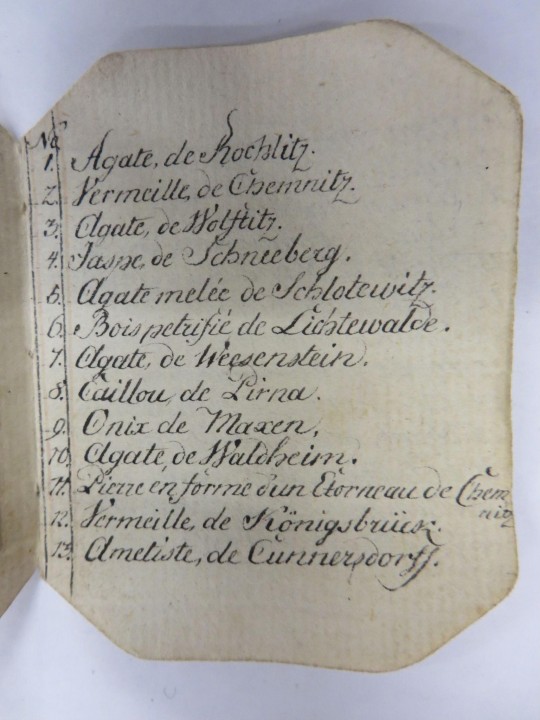 No
1. Agate, de Rochlitz.
2. Vermeille, de Chemnitz.
3. Agate, de Wolftitz.
4. Jaspe, de Schneeberg.
5. Agate melée de Schlotewitz.
6. Bois petrifié de Lichtewalde.
7. Agate, de Weesenstein.
8. Caillou, de Pirna.
9. Onix de Maxen.
10. Agate, de Waldheim.
11. Pierre en forme d'un Etorneau de Chem
nitz
12. Vermeille, de Königsbrück.
13. Ametiste, de Cunnersdorff.